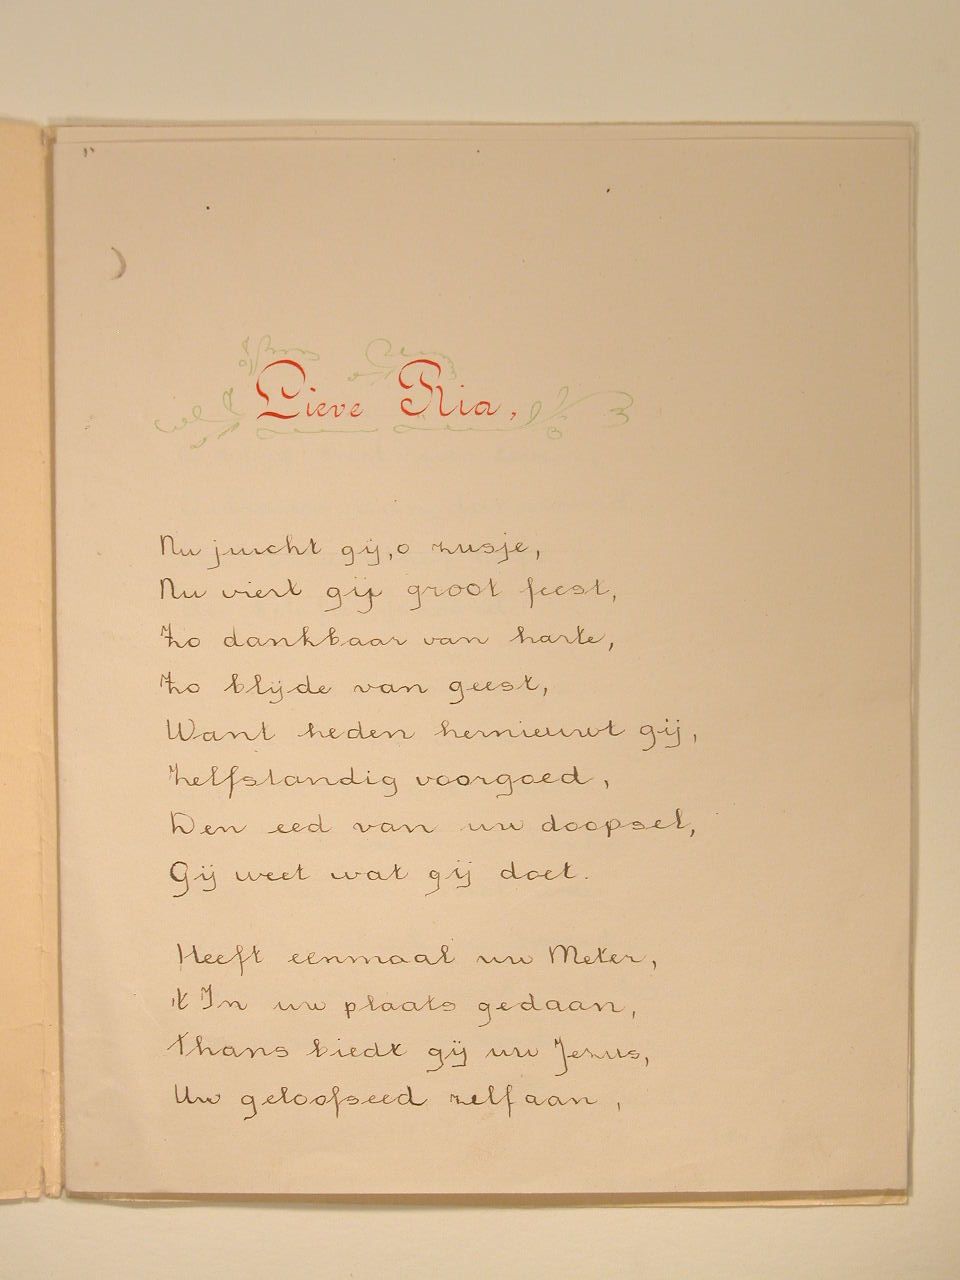 Lieve Ria,
Nu juicht gij, o zusje,
Nu viert gij groot feest,
Zo dankbaar van harte,
Zo blijde van geest,
Want heden hernieuwt gij,
Zelfstandig voorgoed,
Den eed van uw doopsel,
Gij weet wat gij doet.
Heeft eenmaal uw Meter,
't In uw plaats gedaan,
Thans biedt gij uw Jezus,
Uw geloofseed zelf aan,